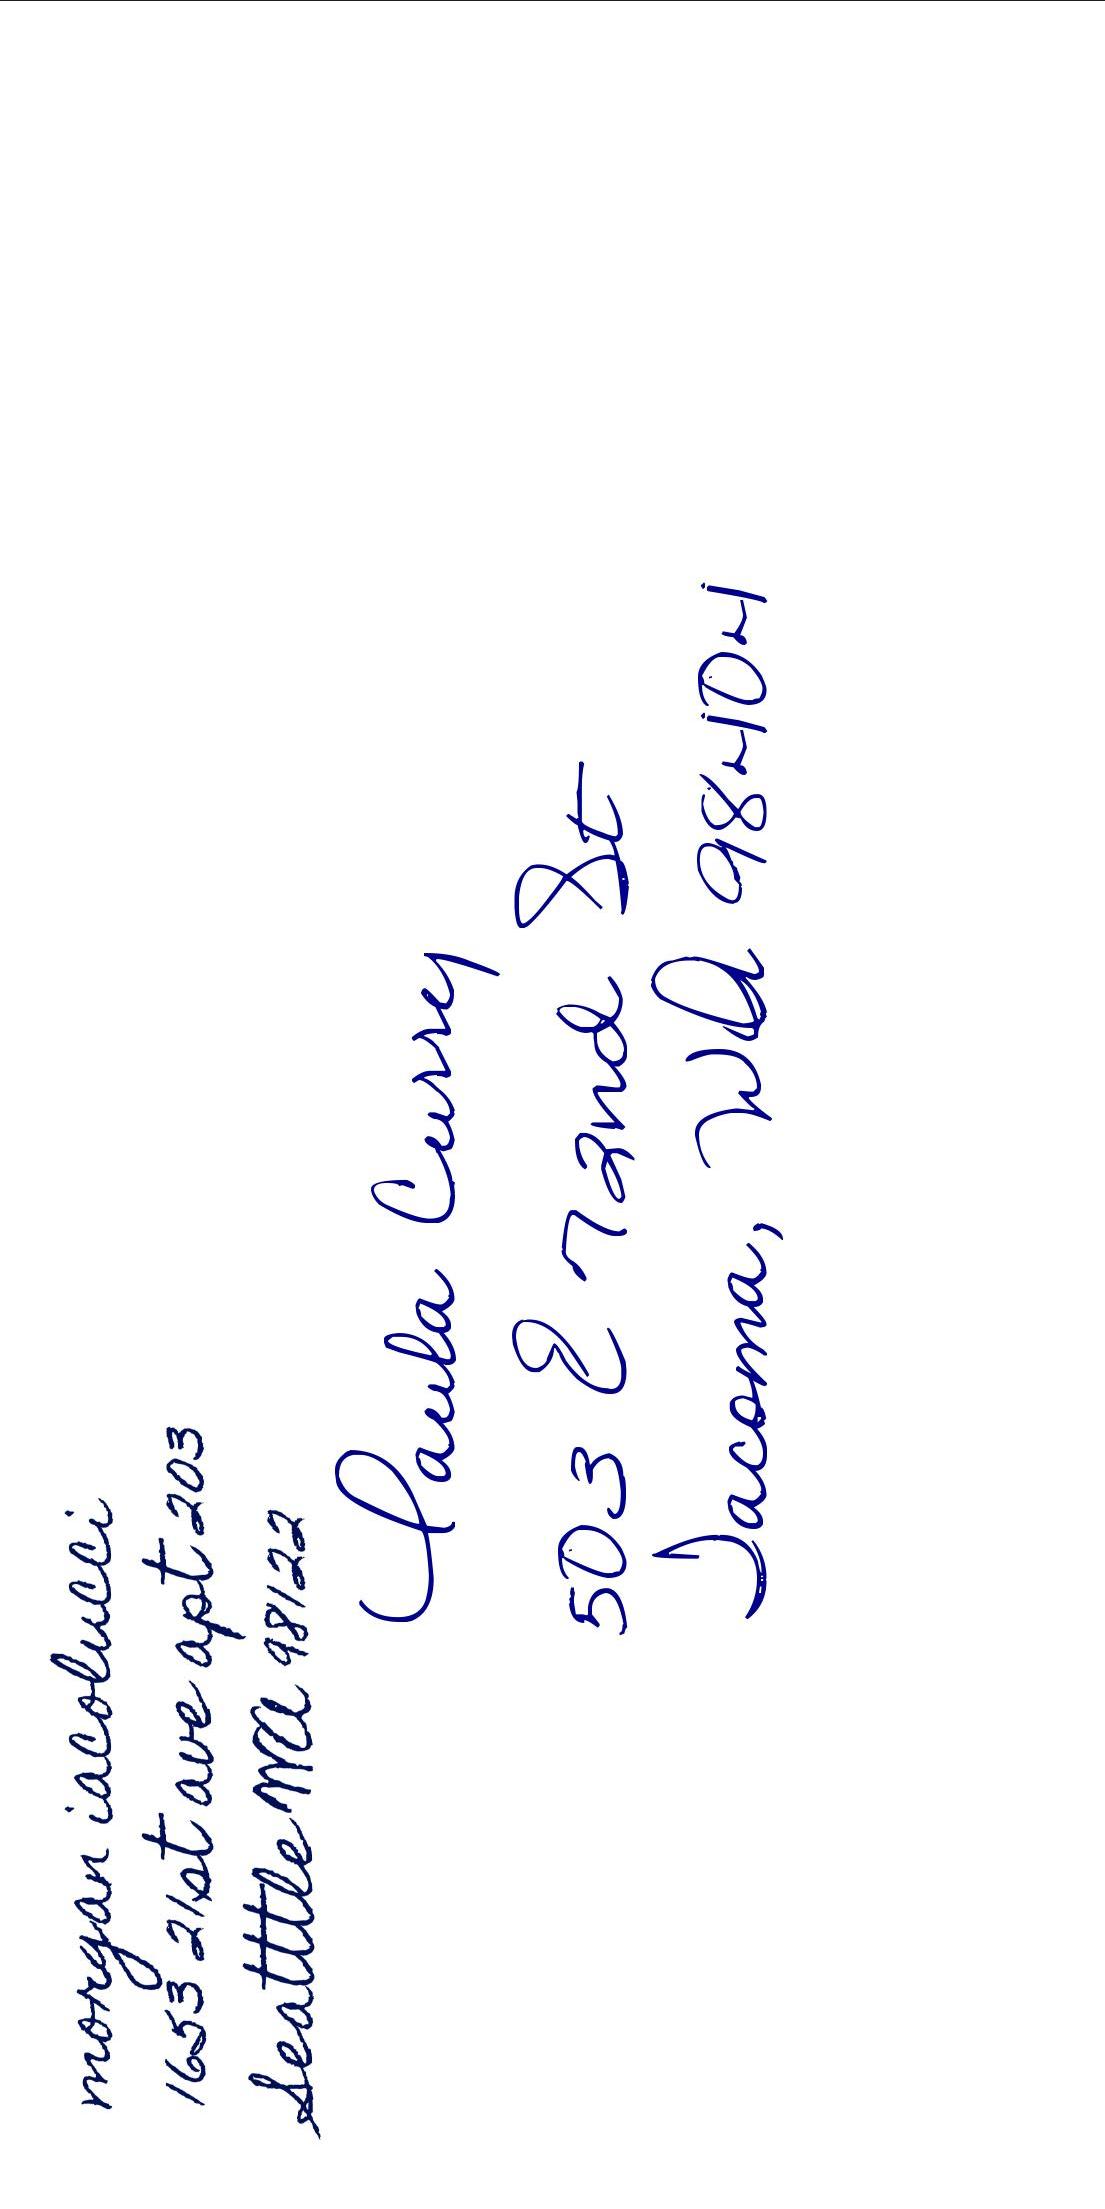 morgan iacolucci
1653 21st ave apt 203
Seattle WA 98122
Paula Currey
503 E 72nd St
Tacoma, WA 98404